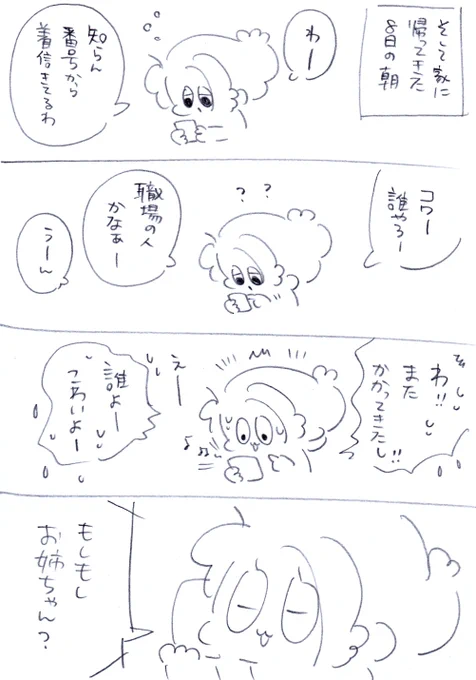 そして家に
帰ってきた
8日の朝
わー
知らん
番号から
着信きてるわ
コワー
誰やろー
? ?
職場の人
かなぁー
うーん
わ!!
また
かかってきたし!!
えー
誰よー
こわいよー
もしもし
お姉ちゃん?